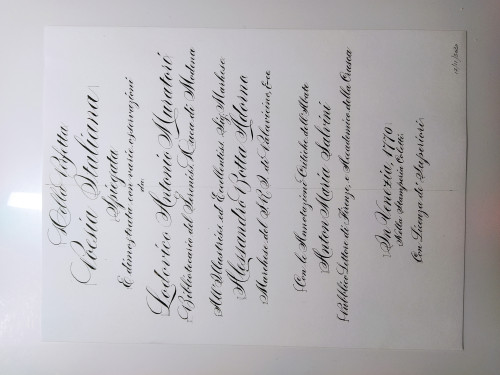 Della Perfetta
Poesia Italiana
Spiegata
E dimostrata con varie osservazioni
da
Lodovico Antonio Muratori
Bibliotecario del Sereniss. Duca di Modena
All'Illustriss. ed Eccellentiss. Sig. Marchese
Alessandro Botta Adorno
Marchese del S.R.I. di Pallavicino, Ec.
Con le Annotazioni Critiche dell'Abate
Anton Maria Salvini
Pubblico Lettore di Firenze, e Accademico della Crusca
In Venezia 1770
Nella Stamperia Coletti
Con Licenza di Superiori.